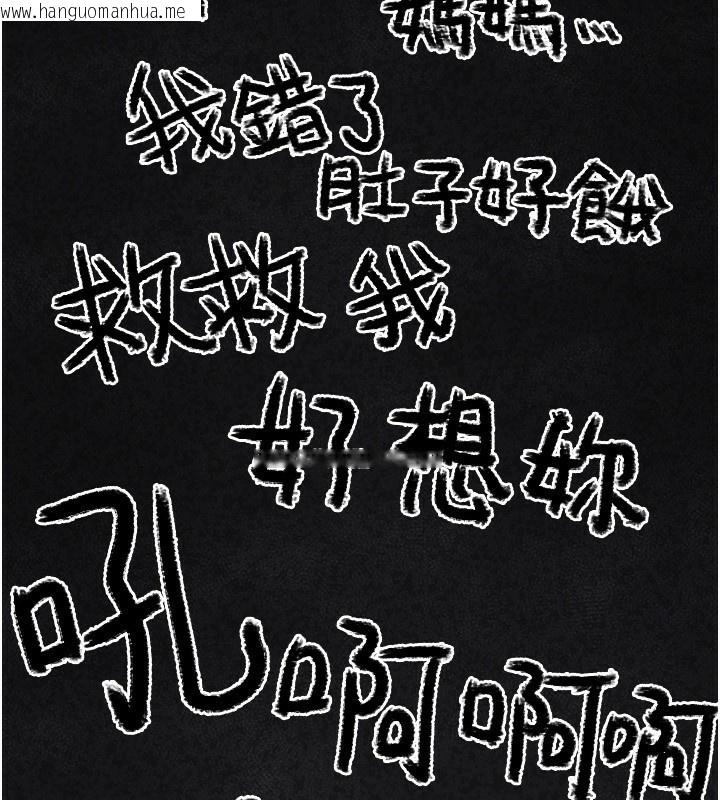 www.hanguomanhua.me
媽媽...
我錯了
肚子好餓
救救我
好想妳
吼啊啊啊